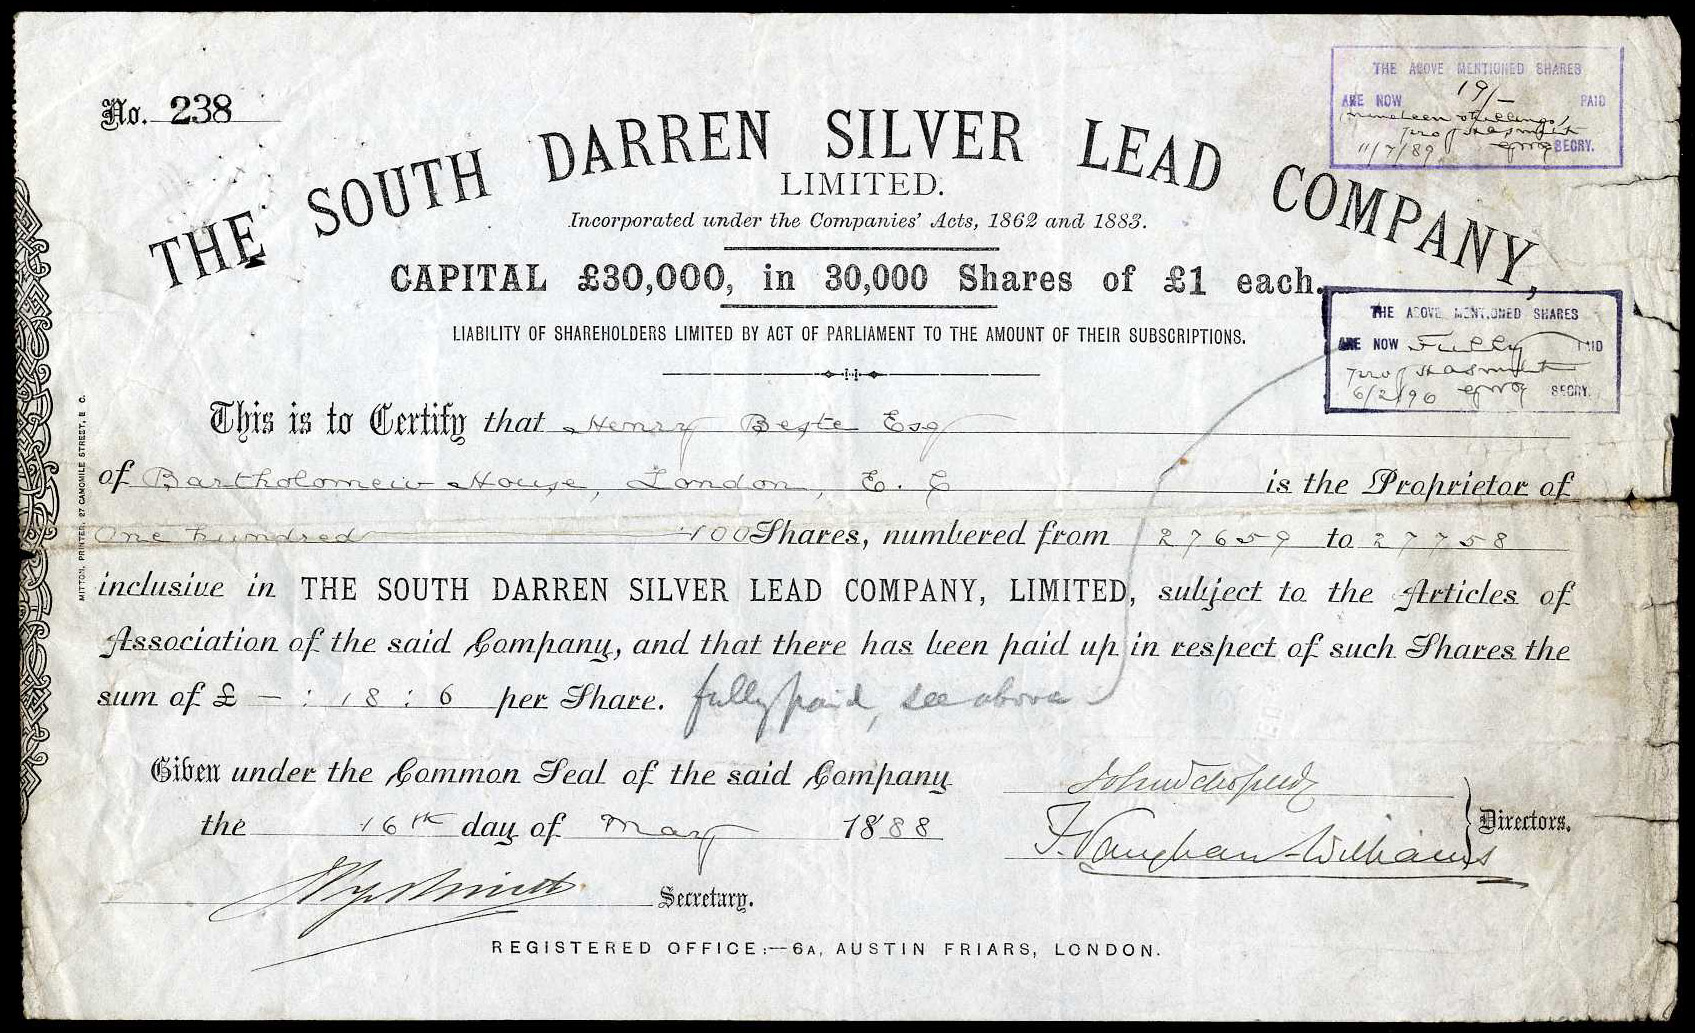 No. 238
THE SOUTH DARREN SILVER LEAD COMPANY,
LIMITED.
Incorporated under the Companies' Acts, 1862 and 1883.
CAPITAL £30,000, in 30,000 Shares of £1 each.
LIABILITY OF SHAREHOLDERS LIMITED BY ACT OF PARLIAMENT TO THE AMOUNT OF THEIR SUBSCRIPTIONS.
THE ABOVE MENTIONED SHARES
ARE NOW 19/- PAID
nineteen shillings
11/7/89 SECRY.
THE ABOVE MENTIONED SHARES
ARE NOW Fully PAID
6/2/96 SECRY.
This is to Certify that Henry Beste Esq
of Bartholomew House, London, E. C is the Proprietor of
One hundred 100 Shares, numbered from 27659 to 27758
inclusive in THE SOUTH DARREN SILVER LEAD COMPANY, LIMITED, subject to the Articles of
Association of the said Company, and that there has been paid up in respect of such Shares the
sum of £ - : 18 : 6 per Share. fully paid, see above
Given under the Common Seal of the said Company
the 16th day of May 1888
F. Vaughan-Williams Directors.
Secretary.
REGISTERED OFFICE:—6A, AUSTIN FRIARS, LONDON.
MITTON, PRINTER, 27 CAMOMILE STREET, E C.